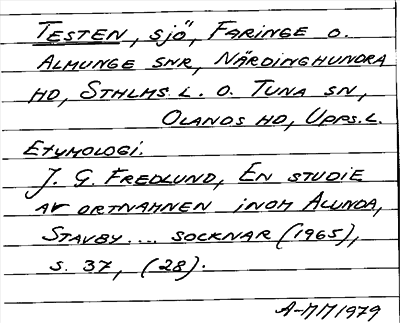 TESTEN, SJÖ, FARINGE O.
ALMUNGE SNR, NÄRDINGHUNDRA
HD, STHLMS. L. O. TUNA SN,
OLANDS HD, UPPS. L.
ETYMOLOGI.
J. G. FREDLUND, EN STUDIE
AV ORTNAMNEN INOM ALUNDA,
STAVBY.... SOCKNAR (1965),
S. 37, (28).
A-MM 1979